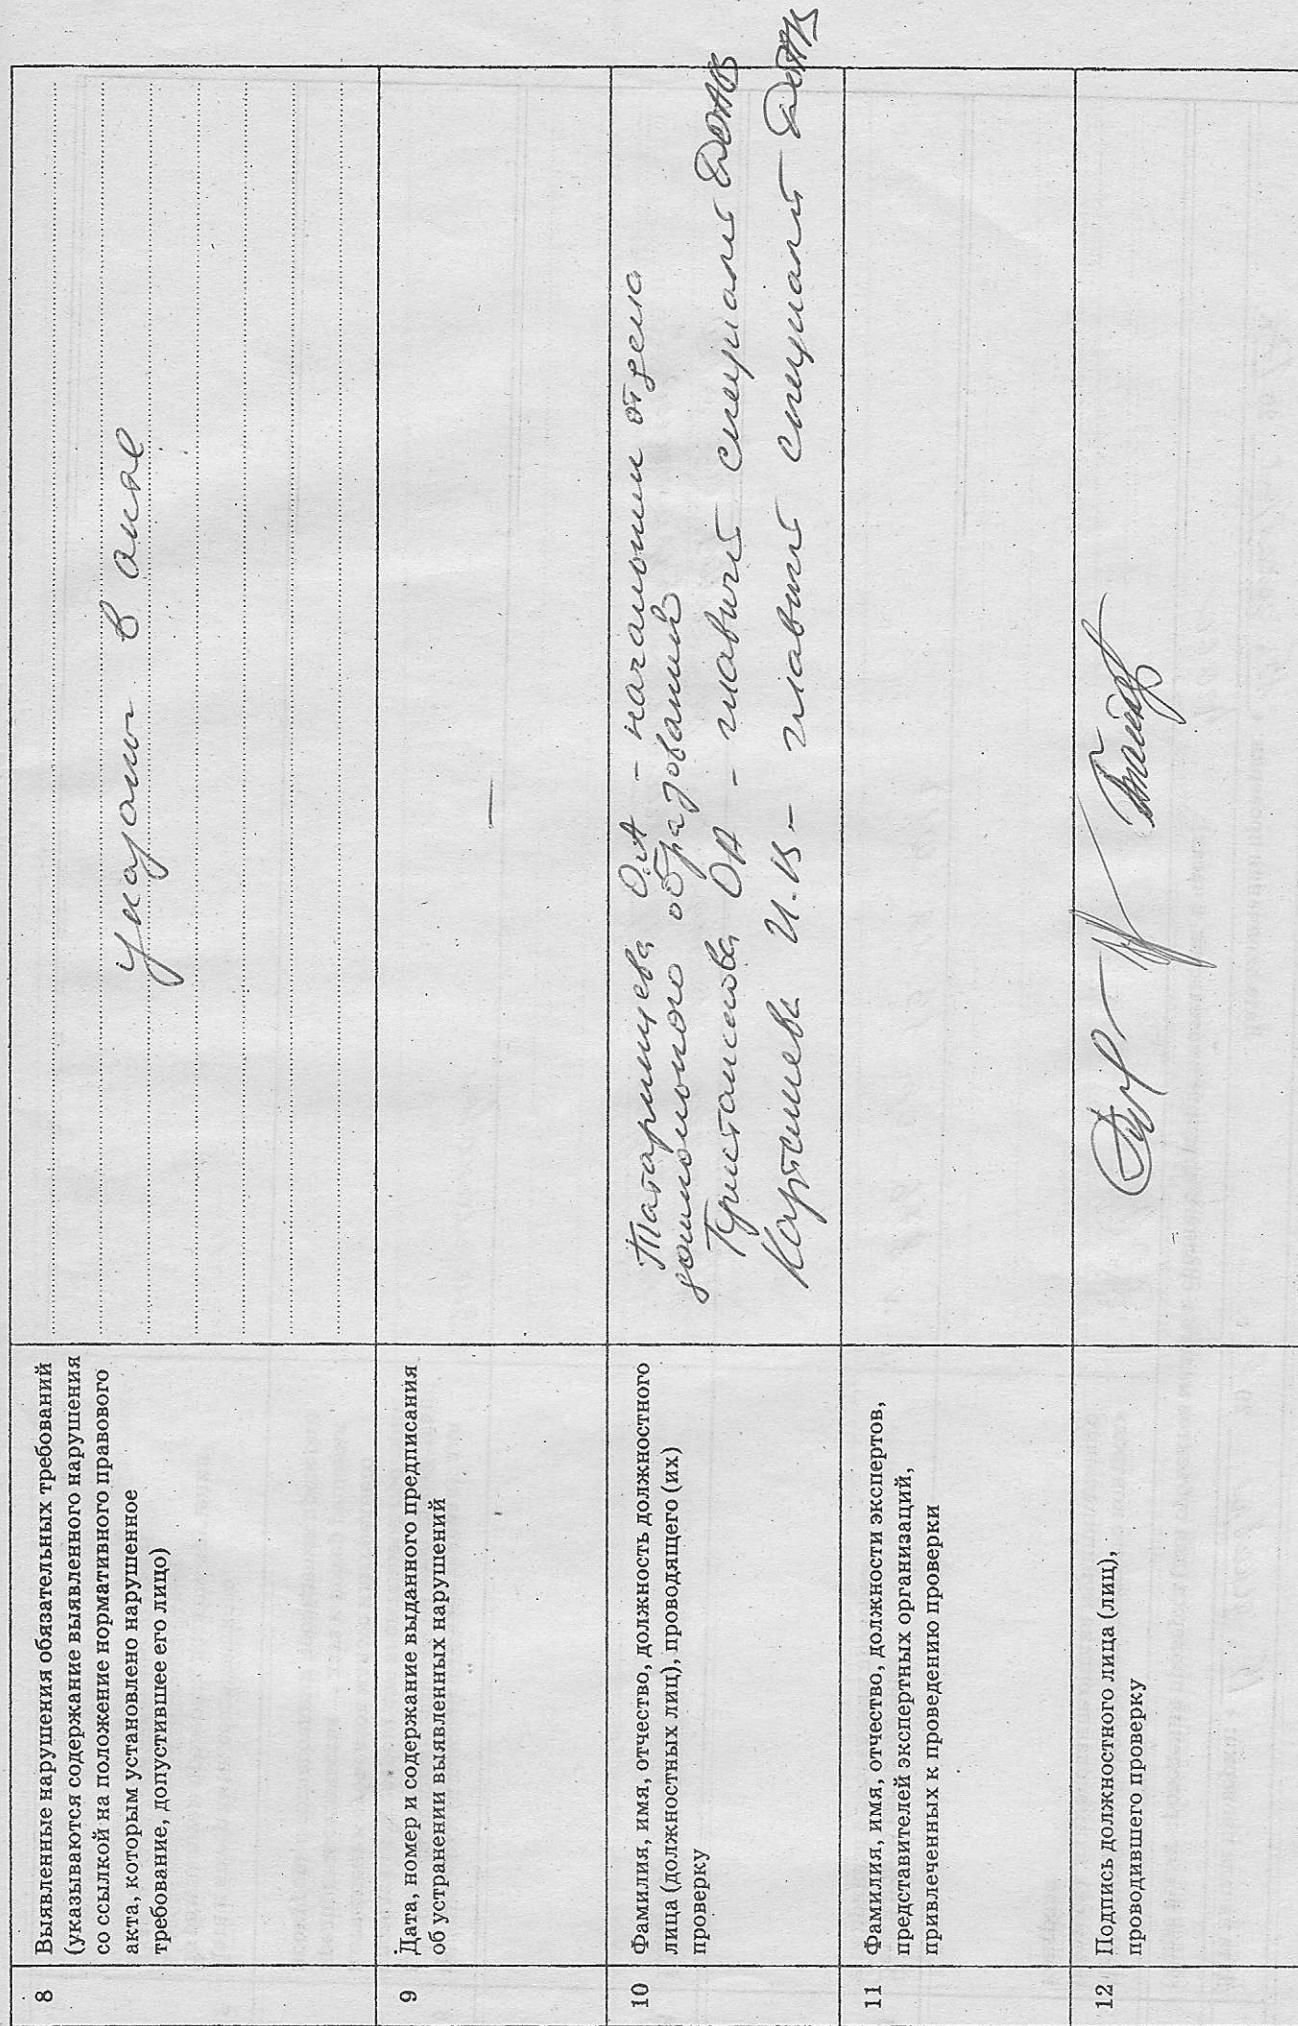 8
Выявленные нарушения обязательных требований
(указываются содержание выявленного нарушения
со ссылкой на положение нормативного правового
акта, которым установлено нарушенное
требование, допустившее его лицо)
указаны в акте
9
Дата, номер и содержание выданного предписания
об устранении выявленных нарушений
—
10
Фамилия, имя, отчество, должность должностного
лица (должностных лиц), проводящего (их)
проверку
Татаринцева О.А - начальник отдела
дошкольного образования
ОА - главный специалист
И.В - главный специалист
11
Фамилия, имя, отчество, должности экспертов,
представителей экспертных организаций,
привлеченных к проведению проверки
12
Подпись должностного лица (лиц),
проводившего проверку